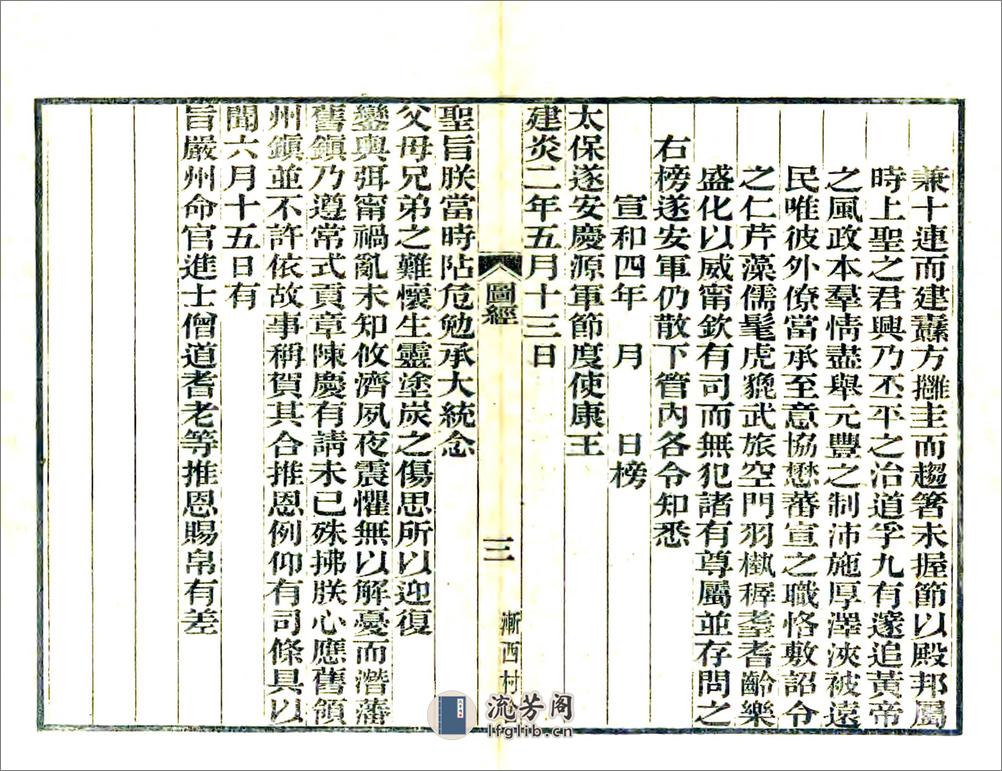 兼十連而建纛方攡圭而趨箬未握節以殿邦屬
時上聖之君興乃丕平之治道孚九有邃追黃帝
之風政本羣情盡舉元豐之制沛施厚澤浹被遠
民唯彼外僚當承至意協懋蕃宣之職恪敷詔令
之仁芹藻儒髦虎貔武旅空門羽檝稺耋耆齡樂
盛化以威甯欽有司而無犯諸有尊屬並存問之
右榜遂安軍仍散下管内各令知悉
宣和四年　月　日榜
太保遂安慶源軍節度使康王
建炎二年五月十三日
圖經
三
漸西村
聖旨朕當時阽危勉承大統念
父母兄弟之難懷生靈塗炭之傷思所以迎復
鑾輿弭甯禍亂未知攸濟夙夜震懼無以解憂而潛藩
舊鎮乃遵常式貢章陳慶有請未已殊拂朕心應舊領
州鎮並不許依故事稱賀其合推恩例仰有司條具以
聞六月十五日有
旨嚴州命官進士僧道耆老等推恩賜帛有差
流芳阁
lfglib.cn